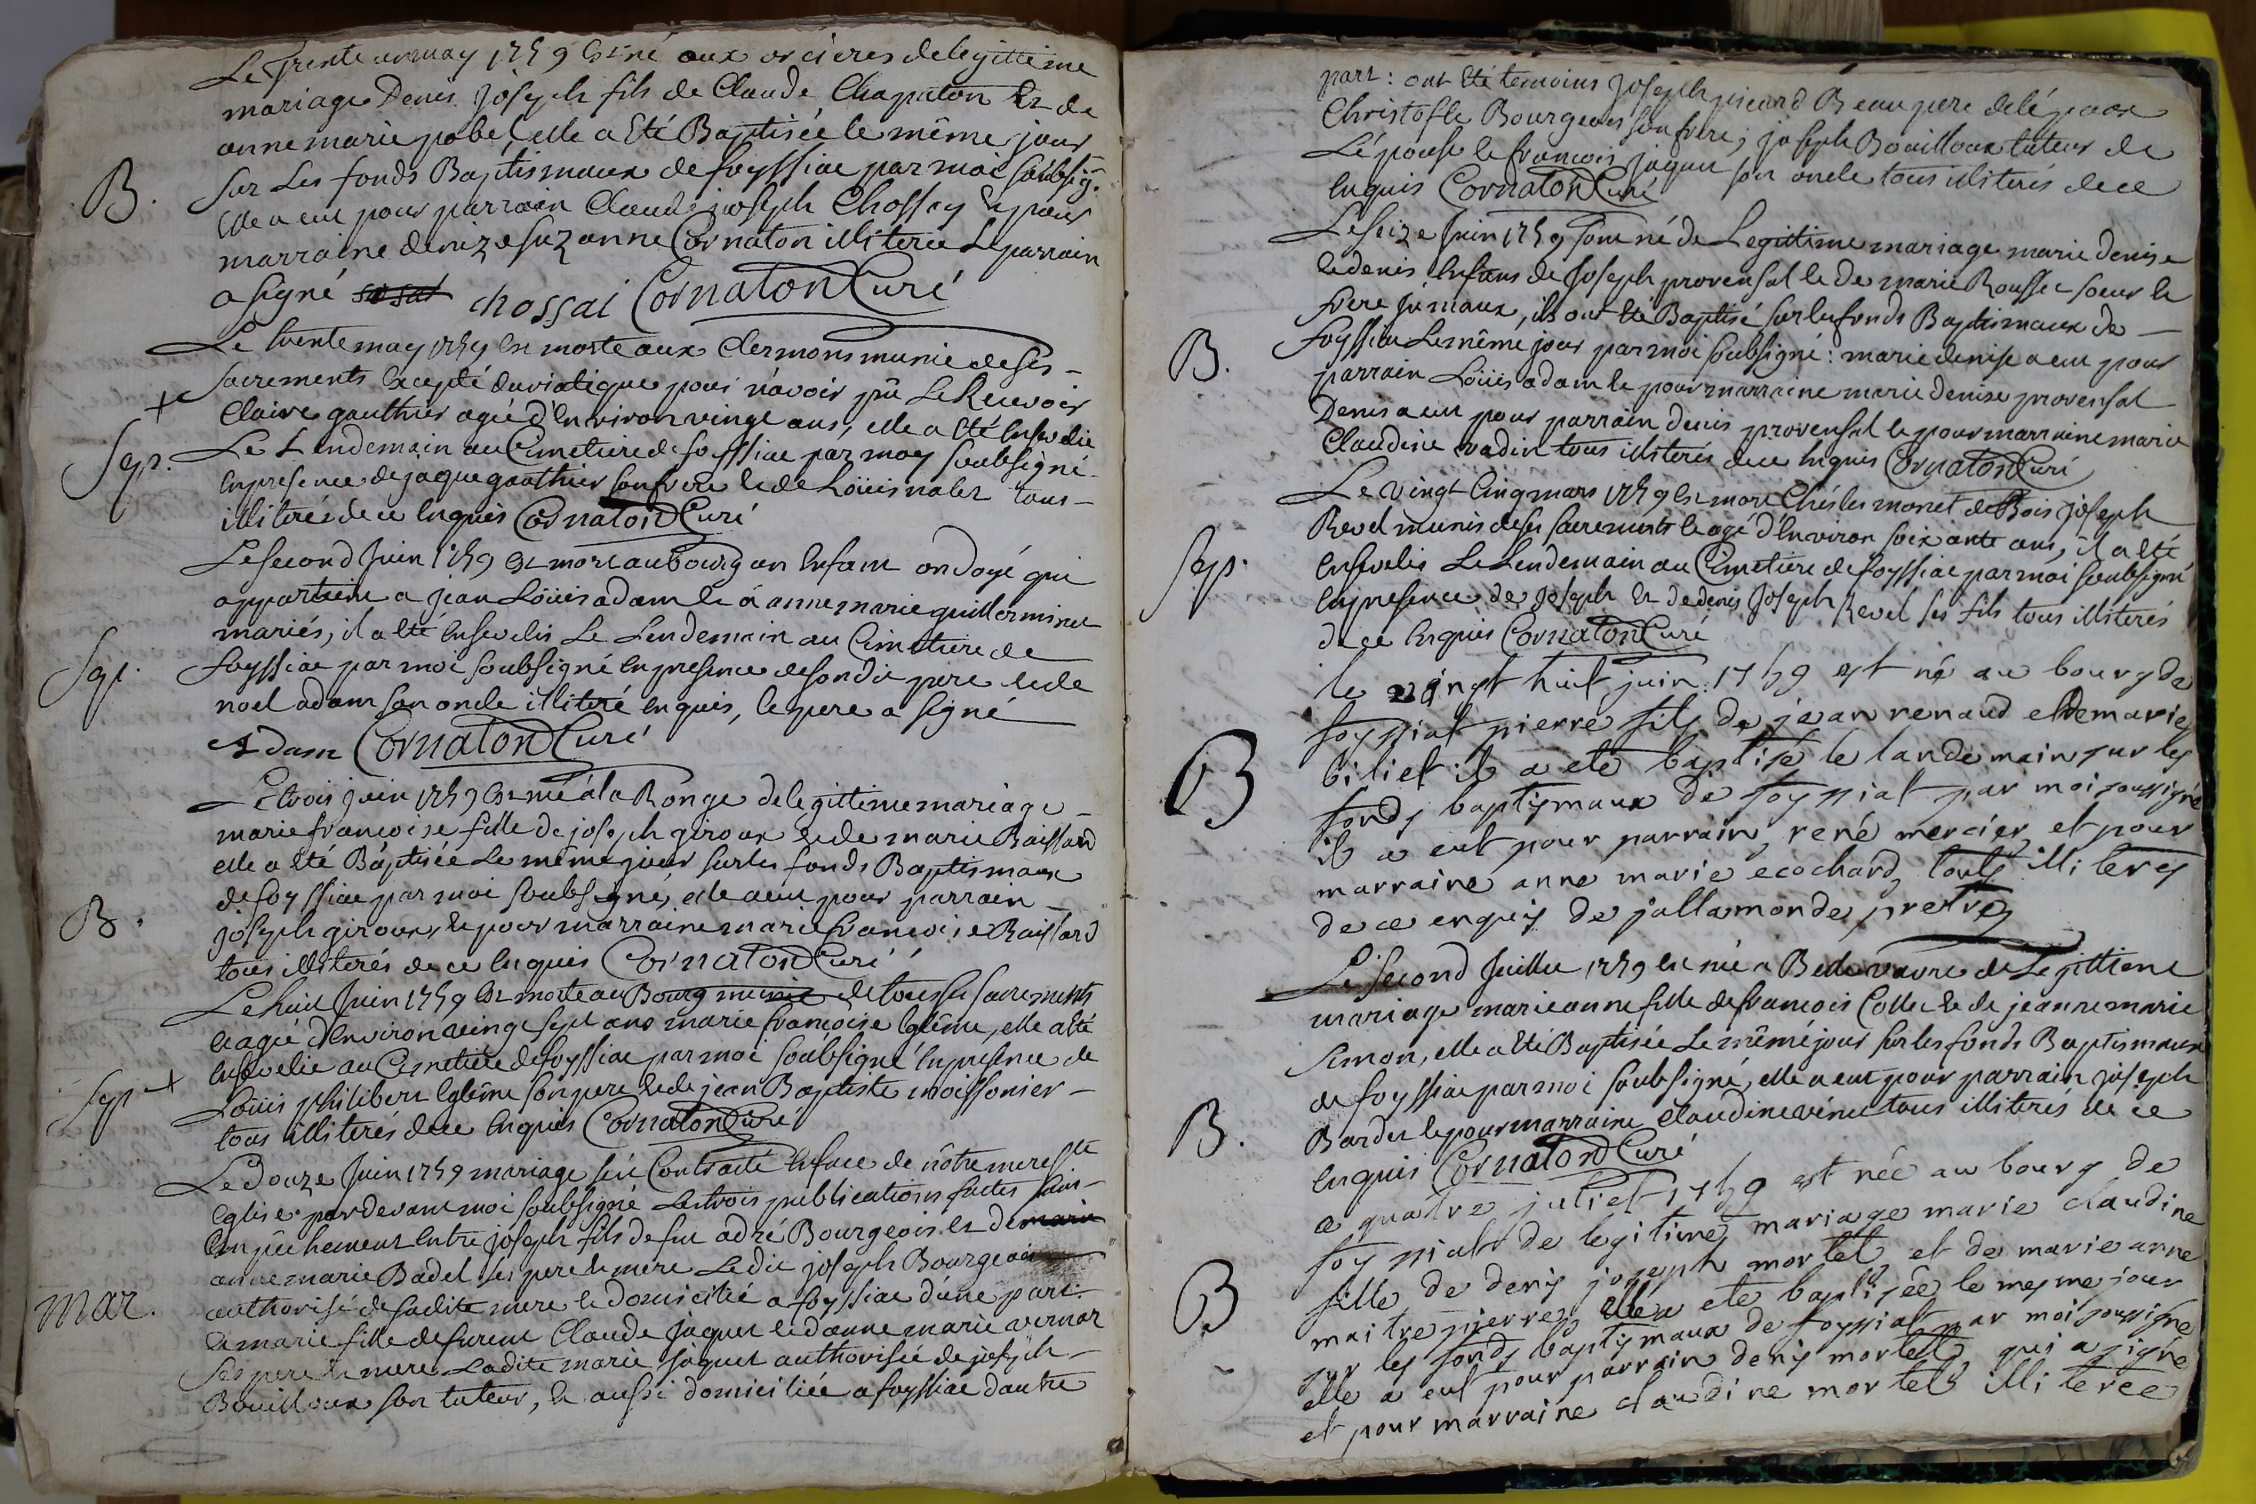 Le trente un may 1759 est né aux orcieres de legittime
mariage Denis joseph fils de Claude Chapaton et de
anne marie pobel, elle a été Baptisée le même jour
B. sur Les fonds Baptismaux de foyssiac par moi soubsig.
elle a eut pour parrain Claude joseph Chossay et pour
marraine denize suzanne Cornaton illiterée Le parrain
a signé chossai Cornaton Curé
Le trente may 1759 est morte aux Clermons munie de ses
+ sacrements excepté du viatique pour n'avoir pû Le Recevoir
Claire gauthier agée d'Environ vingt ans, elle a été Ensevelie
Sep. Le Lendemain au Cimetiere de foyssiac par moy soubsigné
En presence de jaque gauthier son frere et de Loüis nalet tous
illiterés de ce Enquis Cornaton Curé
Le second juin 1759 est mort au bourg un Enfant ondoyé qui
appartient a jean Loüis adam et a anne marie guillerminet
mariés, il a été Ensevelis Le Lendemain au Cimetiere de
Sep. foyssiac par moi soubsigné En presence de son dit pere et de
noel adam son oncle illiteré Enquis, le pere a signé
Adam Cornaton Curé
Le trois juin 1759 est née a la Ronge de legittime mariage
marie francoise fille de joseph giroux et de marie Raissard
elle a été Baptisée Le même jour sur les fonds Baptismaux
de foyssiac par moi soubsigné, elle a eut pour parrain
B. joseph giroux, et pour marraine marie francoise Raissard
tous illiterés de ce Enquis Cornaton Curé
Le huit Juin 1759 est morte au Bourg munie de tous les sacrements
et agée d'Environ vingt sept ans marie françoise Eglême, elle a été
Ensevelie au Cimetiere de foyssiac par moi soubsigné En presence de
Sep + Loüis philibert Eglême son pere et de jean Baptiste moissonier
tous illiterés de ce Enquis Cornaton Curé
Le Douze Juin 1759 mariage s'est Contracté En face de nôtre mere ste
Eglise par devant moi soubsigné Les trois publications faites sans
Empêchement Entre joseph fils de feu adré Bourgeois et de marie
anne marie Badel ses pere et mere Le dit joseph Bourgeois
authorisé de sa dite mere et domicilié a foyssiac d'une part
Mar. et marie fille de furent Claude Jaquet et d'anne marie vernar
ses pere et mere Ladite marie jaquet authorisée de joseph
Bouilloux son tuteur, et aussi domiciliée a foyssiac d'autre
part: ont été temoins joseph picard Beau pere de l'époux
Christofle Bourgeois son frere; joseph Bouilloux tuteur de
L'épouse et francois jaquet son oncle tous illiterés de ce
Enquis Cornaton Curé
Le seize Juin 1759 sont né de Legittime mariage marie denise
et denis Enfans de Joseph provensal et de marie Rousset soeur et
frere jumaux, ils ont été Baptisé sur les fonds Baptismaux de
B. foyssiac Le même jour par moi soubsigné: marie denise a eut pour
parrain Loüis adam et pour marraine marie denise provensal
Denis a eut pour parrain denis provensal et pour marraine marie
Claudine vadin tous illiterés de ce Enquis Cornaton Curé
Le Vingt Cinq mars 1759 est mort Chés les monet de Bois joseph
Revel munis de ses sacrements et agé d'Environ soixante ans, il a été
Sep. Ensevelis Le Lendemain au Cimetiere de foyssiac par moi soubsigné
En presence de Joseph et de denis Joseph Revel ses fils tous illiterés
de ce Enquis Cornaton Curé
le vingt huit juin 1759 est né au bourg de
foyssiat pierre fils de jean renaud et de marie
B biliet il a eté baptisé le landemain sur les
fonds baptismaux de foyssiat par moi soussigné
il a eut pour parrain, rené mercier et pour
marraine anne marie ecochard, touts illiterés
de ce enquis de jallamonde pretre
Le second Juillet 1759 est née a Bellevavre de Legittime
mariage marie anne fille de francois Collet et de jeanne marie
simon, elle a été Baptisée Le même jour sur les fonds Baptismaux
de foyssiac par moi soubsigné, elle a eut pour parrain joseph
B. Bardet et pour marraine Claudine vénet tous illiterés de ce
Enquis Cornaton Curé
e quatre juliet 1759 est née au bourg de
foyssiat de legitime mariage marie claudine
fille de denis joseph mortel et de marie anne
B maitrepierre, elle a eté baptisée le mesme jour
sur les fonds baptismaux de foyssiat par moi soussigné
elle a eut pour parrain denis mortel qui a signé
et pour marraine claudine mortel illiterée